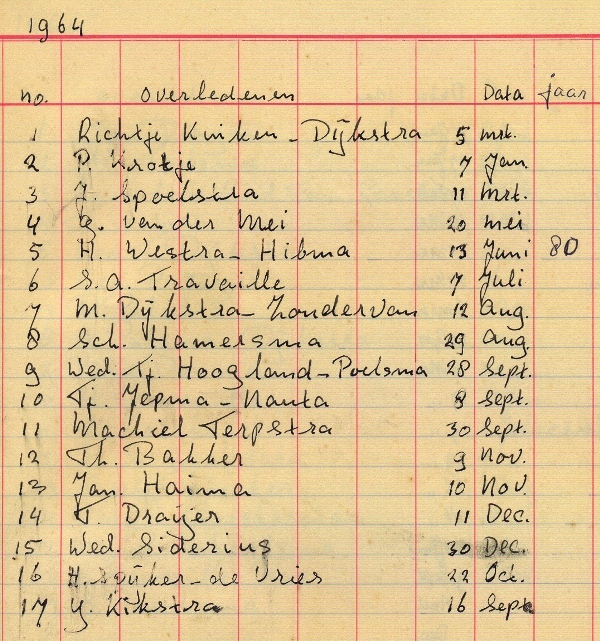 1964
no. Overledenen Data jaar
1 Richtje Kuiken - Dijkstra 5 mrt.
2 P. Krotje 7 Jan.
3 J. Spoelstra 11 Mrt.
4 G. van der Mei 20 mei
5 H. Westra - Hibma 13 Juni 80
6 S.A. Travaille 7 Juli
7 M. Dijkstra - Zondervan 12 Aug.
8 Sch. Hamersma 29 Aug.
9 Wed. Tj. Hoogland - Poelsma 28 Sept.
10 Tj. Jepma - Nauta 8 Sept.
11 Machiel Terpstra 30 Sept.
12 Th. Bakker 9 Nov.
13 Jan. Haima 10 Nov.
14 T. Draijer 11 Dec.
15 Wed. Siderius 30 Dec.
16 H. Spijker - de Vries 22 Oct.
17 Y. Kikstra 16 Sept